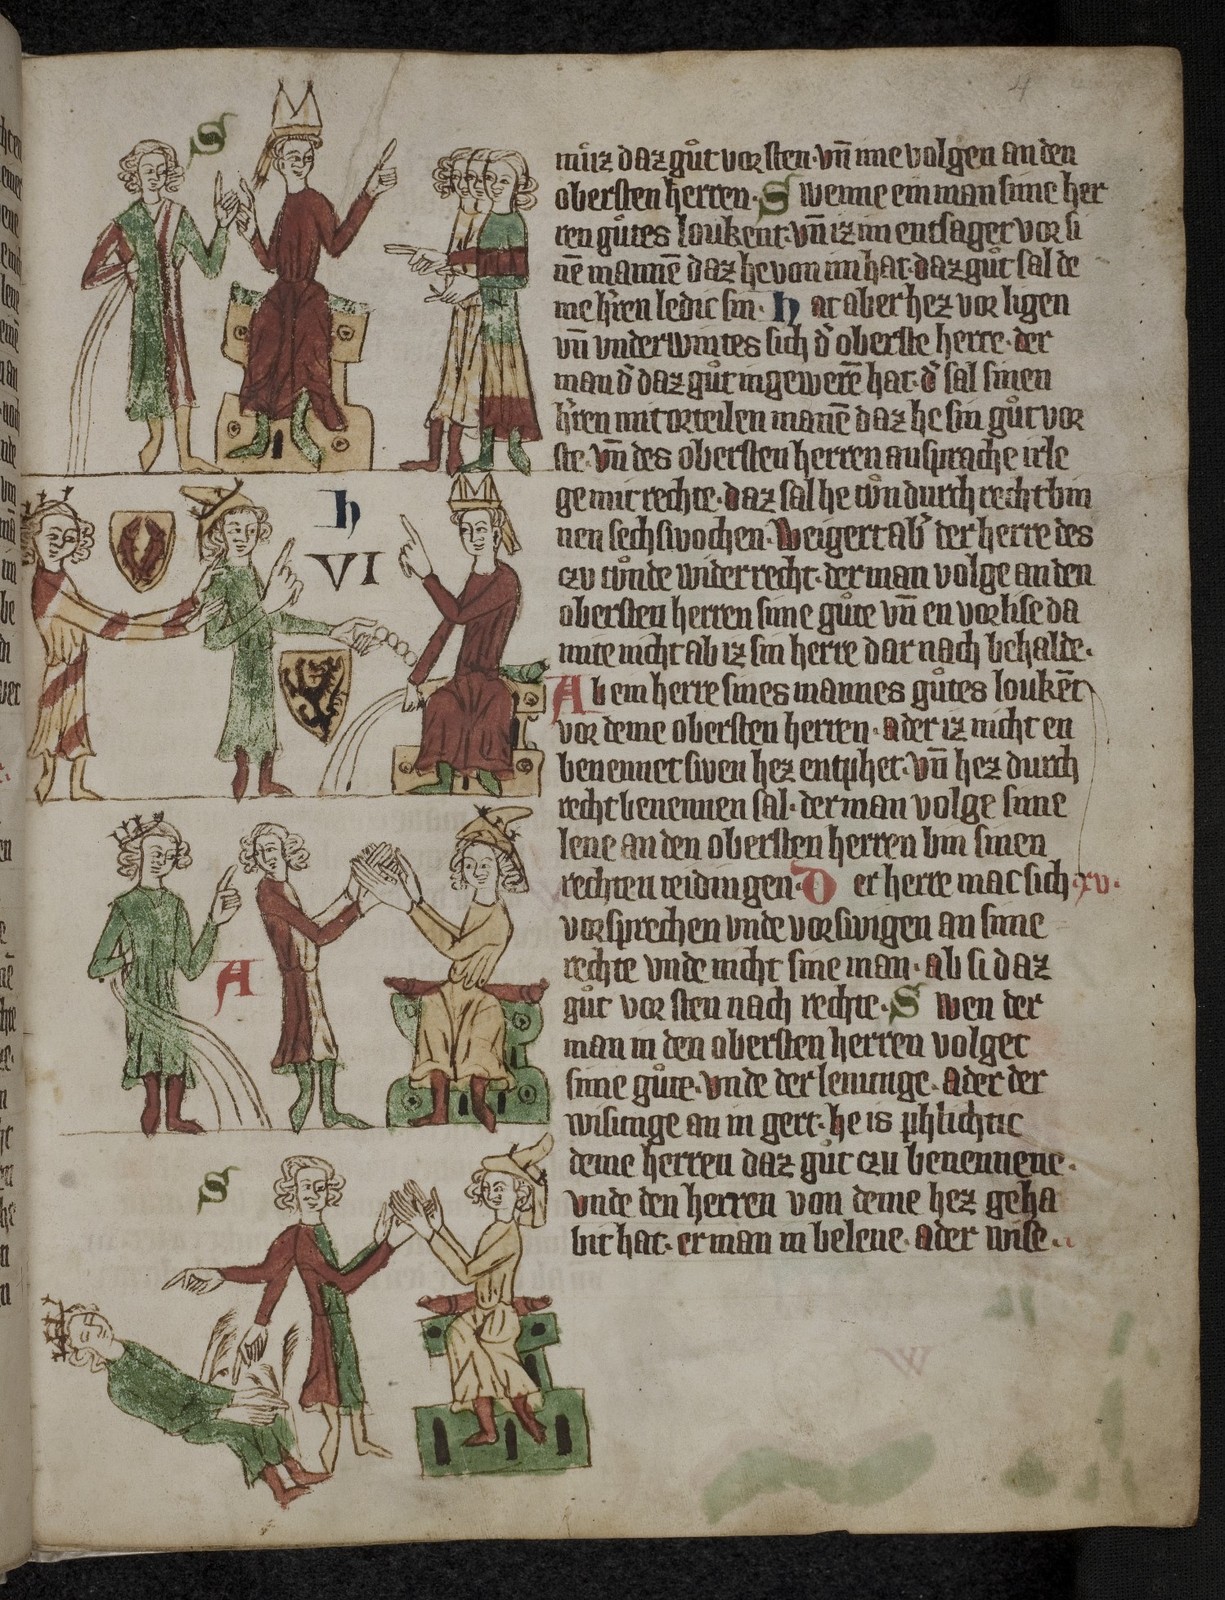 4
S
h
VI
A
S
můz daz gůt vor sten· vn̄ nne volgen an den
obersten herren· S wenne ein man sime her
ren gůtes loukent· vn̄ iz im entsaget vor si
nē mannē daz he von im hat· daz gůt sal de
me h'ren ledic sin· h at aber hez vor ligen
vn̄ vnderwintes sich d' oberste herre· der
man d' daz gůt in gewere hat· d' sal sinen
h'ren mit orteilen manē daz he sin gůt vor
ste· vn̄ des obersten herren ansprache irle
ge mit rechte· daz sal he tůn durch recht bin
nen sechs wochen· Weigert ab' der herre des
czu tůnde wider recht· der man volge an den
obersten herren sime gůte vn̄ en vorlise da
mite nicht ab iz sin herre dar nach behalde·
A b ein herre sines mannes gůtes loukēt
vor deme obersten herren· ader iz nicht en
benennet swen hez entphet· vn̄ hez durch
recht benennen sal· der man volge sime
lene an den obersten herren bin sinen
rechten teidingen· D er herre mac sich xv·
vorsprechen vnde vorswigen an sime
rechte vnde nicht sine man· ab si daz
gůt vor sten nach rechte· S wen der
man in den obersten herren volget
sime gůte· vnde der lenunge· ader der
wisunge an in gert· he is phlichtic
deme herren daz gůt czu benennene·
vnde den herren von deme hez geha
bit hat· er man in belene· ader wise·